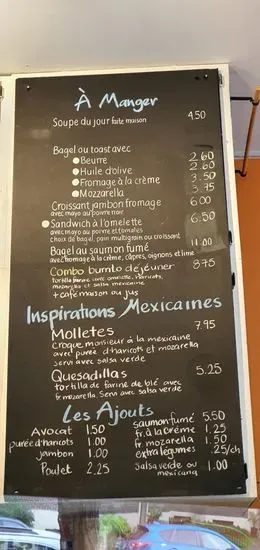 À Manger
Soupe du jour faite maison 4.50
Bagel ou toast avec
Beurre 2.60
Huile d'olive 2.60
Fromage à la crème 3.50
Mozzarella 3.75
Croissant jambon fromage 6.00
avec mayo au poivre noir
Sandwich à l'omelette 6.50
avec mayo au poivre et tomates
choix de bagel, pain multigrain ou croissant
Bagel au saumon fumé 11.00
avec fromage à la crème, câpres, oignons et lime
Combo burrito déjeuner 8.75
tortilla farcie avec omelette, haricots,
mozzarella et salsa mexicaine
+ café maison ou jus
Inspirations Mexicaines
Molletes 7.95
Croque monsieur à la mexicaine
avec purée d'haricots et mozarella
servi avec salsa verde
Quesadillas 5.25
tortilla de farine de blé avec
fr. mozarella. Servi avec salsa verde
Les Ajouts
Avocat 1.50
purée d'haricots 1.00
jambon 1.00
Poulet 2.25
saumon fumé 5.50
fr. à la crème 1.25
fr mozarella 1.50
extra légumes .25/ch
salsa verde ou 1.00
mexicana